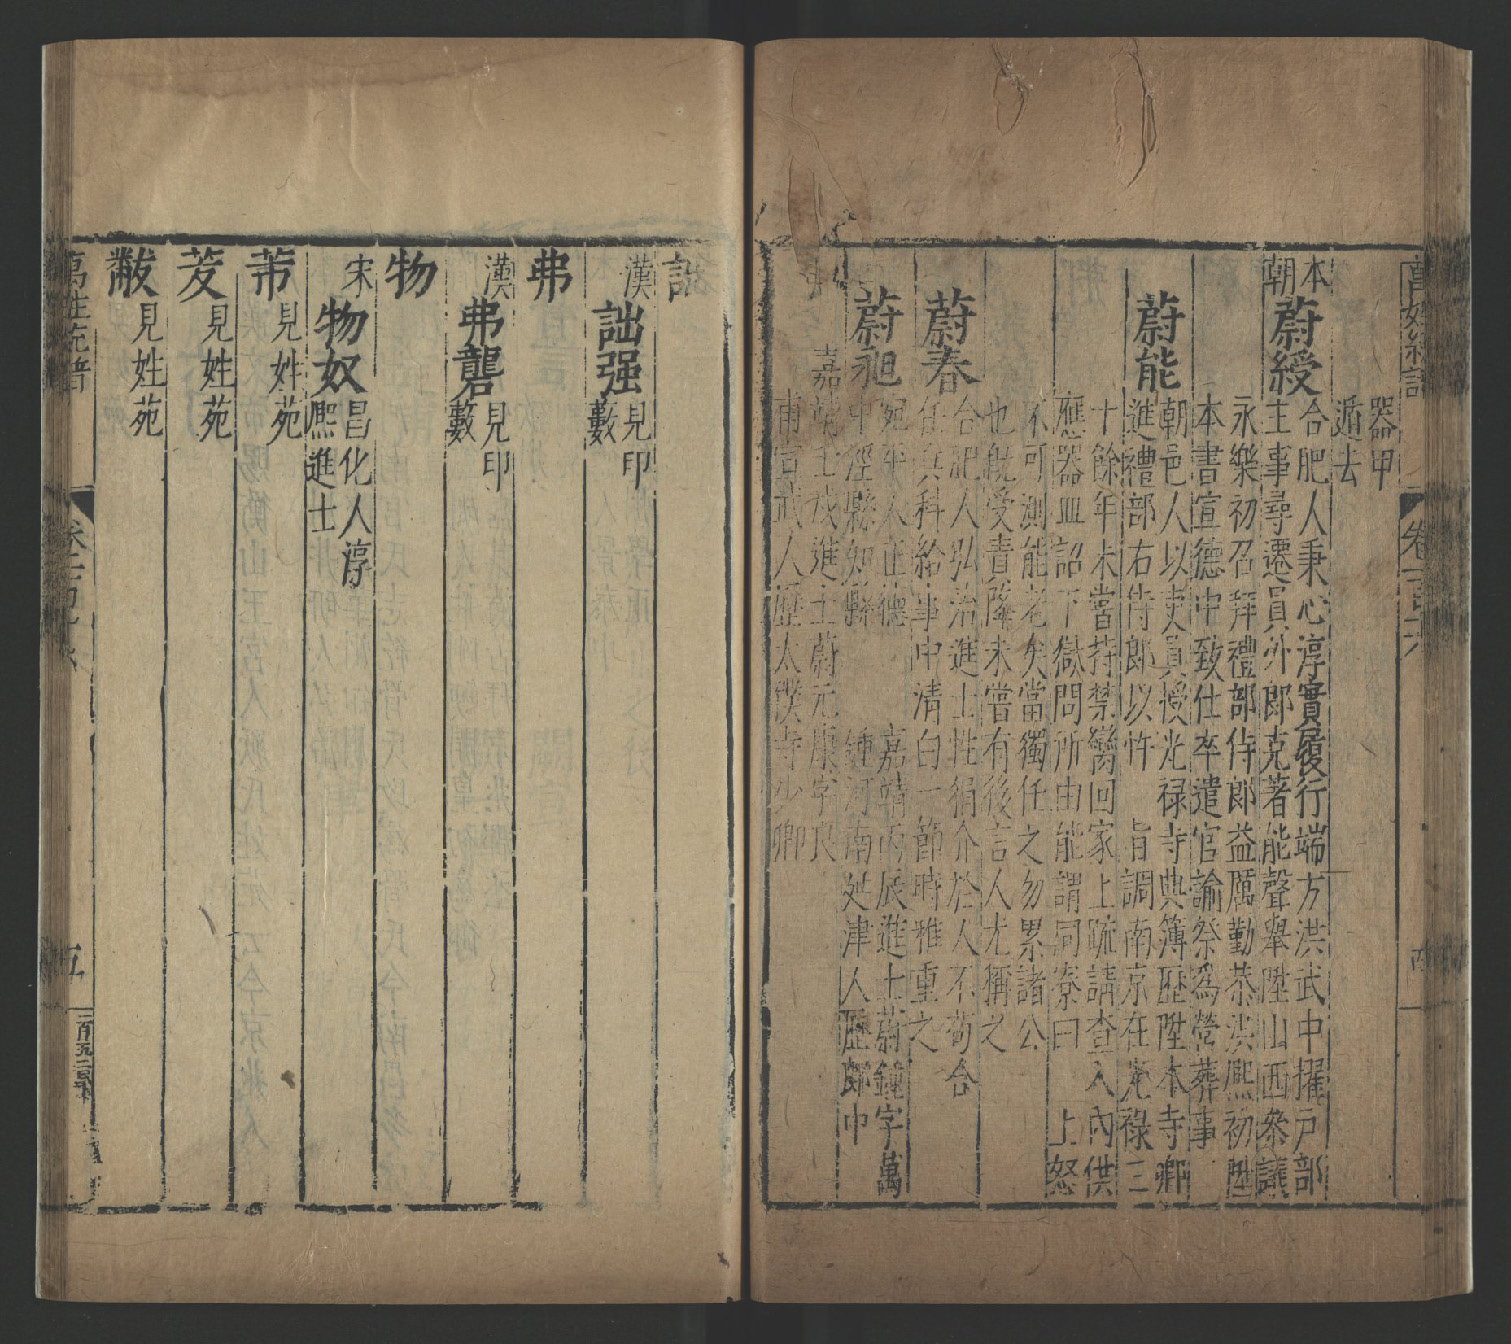 器甲
遁去
本朝
蔚綬
合肥人秉心淳實履行端方洪武中擢戶部
主事尋遷員外郎克著能聲舉陞山西參議
永樂初召拜禮部侍郎益厲勤恭洪熙初陞
本書宣德中致仕卒遣官諭祭為營葬事
蔚能
朝邑人以吏員授光禄寺典簿歷陞本寺卿
進禮部右侍郎以忤 旨調南京在光禄三
十餘年未嘗持禁臠回家上疏請查入內供
應器皿詔下獄問所由能謂同寮曰 上怒
不可測能老矣當獨任之勿累諸公
也既受責降未嘗有後言人尤稱之
蔚春
合肥人弘治進士性狷介於人不苟合
任兵科給事中清白一節時雅重之
蔚昶
宛平人正德
中涇縣知縣
嘉靖丙辰進士蔚鍾字萬
鍾河南延津人歷郎中
嘉
靖壬戌進士蔚元康字良
甫宣武人歷太僕寺少卿
卷一百六
詘
漢
詘强
見印
藪
弗
漢
弗礱
見印
藪
物
宋
物奴
昌化人淳
熈進士
芾
見姓苑
茇
見姓苑
黻
見姓苑
萬姓統譜
五